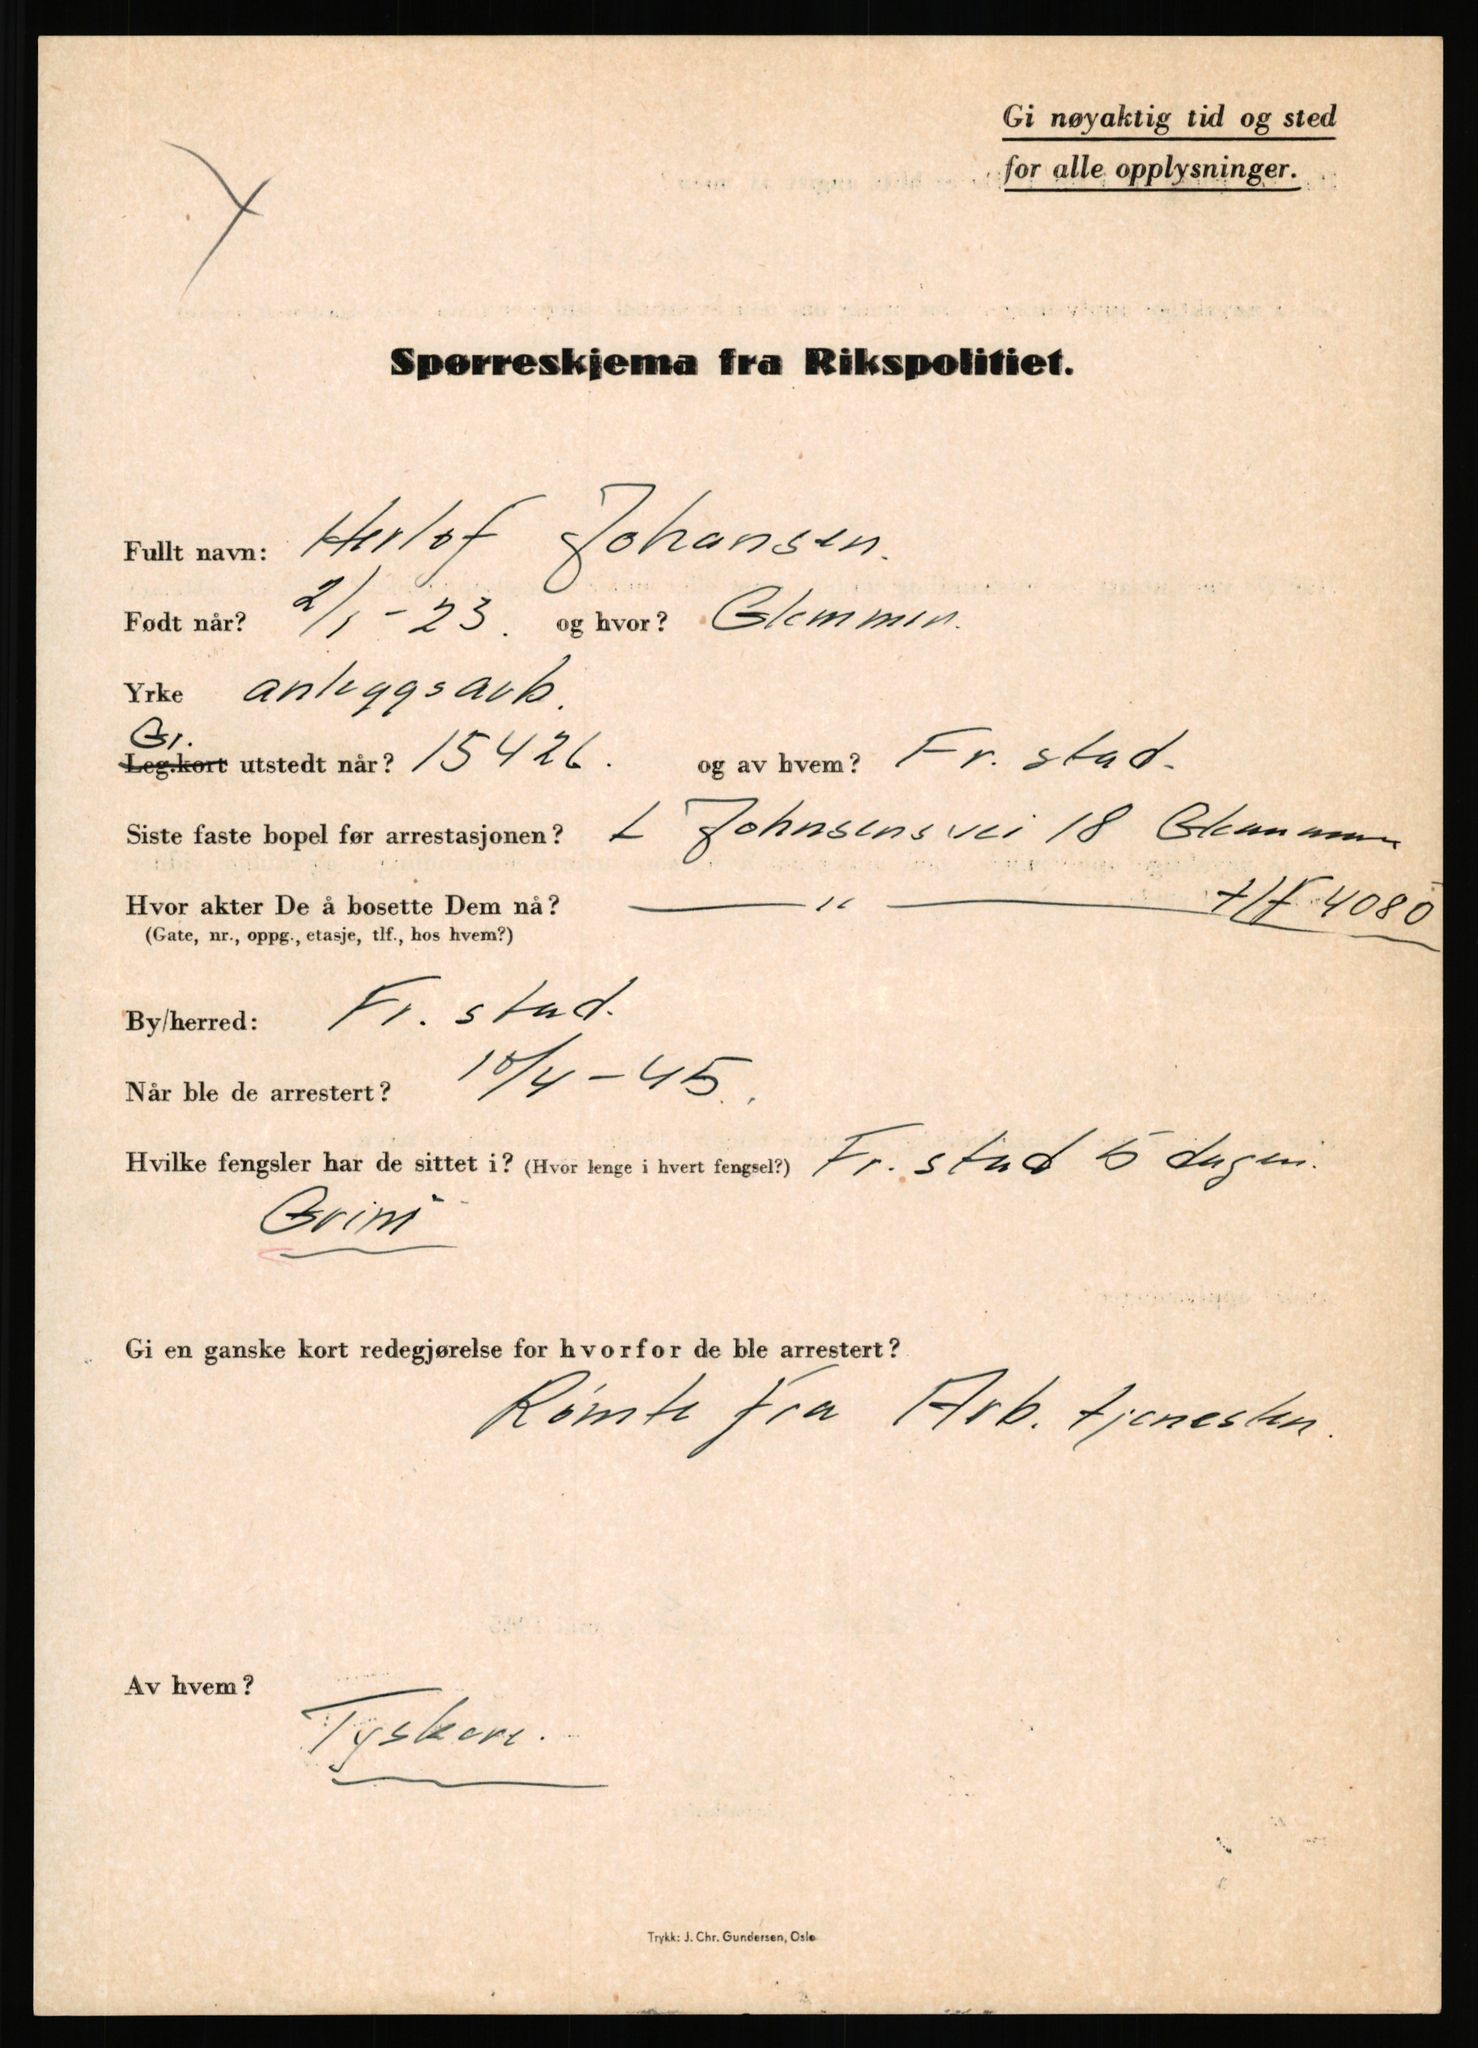 Gi nøyaktig tid og sted
for alle opplysninger.
Spørreskjema fra Rikspolitiet.
Fullt navn: Herlof Johansen.
Født når? 2/1-23. og hvor? Glemmen.
Yrke anleggsarb.
Gr.
Leg.kort utstedt når? 15426. og av hvem? Fr.stad.
Siste faste bopel før arrestasjonen? L Johnsensvei 18 Glemmen
Hvor akter De å bosette Dem nå? — " — tlf 4080
(Gate, nr., oppg., etasje, tlf., hos hvem?)
By/herred: Fr.stad.
Når ble de arrestert? /4-45.
Hvilke fengsler har de sittet i? (Hvor lenge i hvert fengsel?) Fr.stad 5 dager.
Grini
Gi en ganske kort redegjørelse for hvorfor de ble arrestert?
Rømte fra Arb. tjenesten.
Av hvem?
Tyskere.
Trykk: J. Chr. Gundersen, Oslo